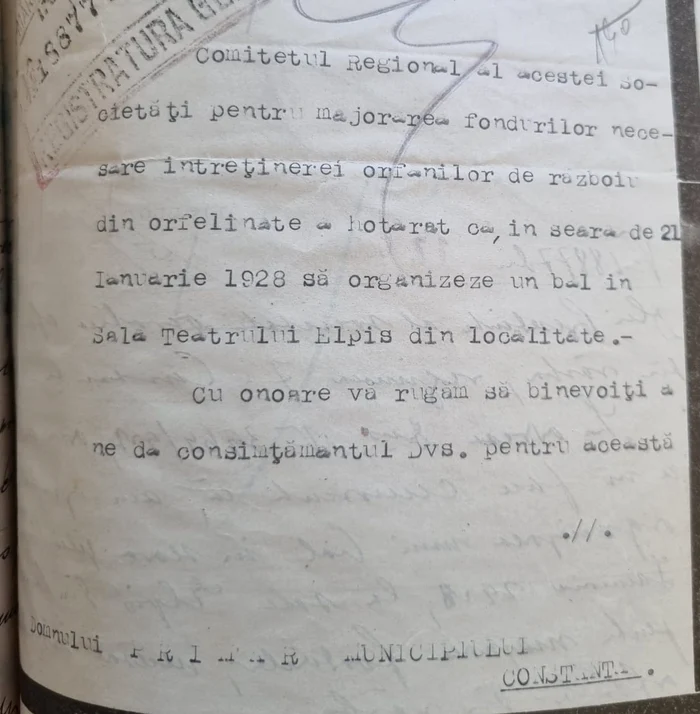 18877
REGISTRATURA GE
Comitetul Regional al acestei so-
cietăţi pentru majorarea fondurilor nece-
sare intreţinerei orfanilor de razboiu
din orfelinate a hotarat ca, in seara de 21
Ianuarie 1928 să organizeze un bal in
Sala Teatrului Elpis din localitate.-
Cu onoare vă rugăm să binevoiţi a
ne da consimţămantul Dvs. pentru această
.//.
Domnului P R I M A R MUNICIPIULUI
CONSTANTA.